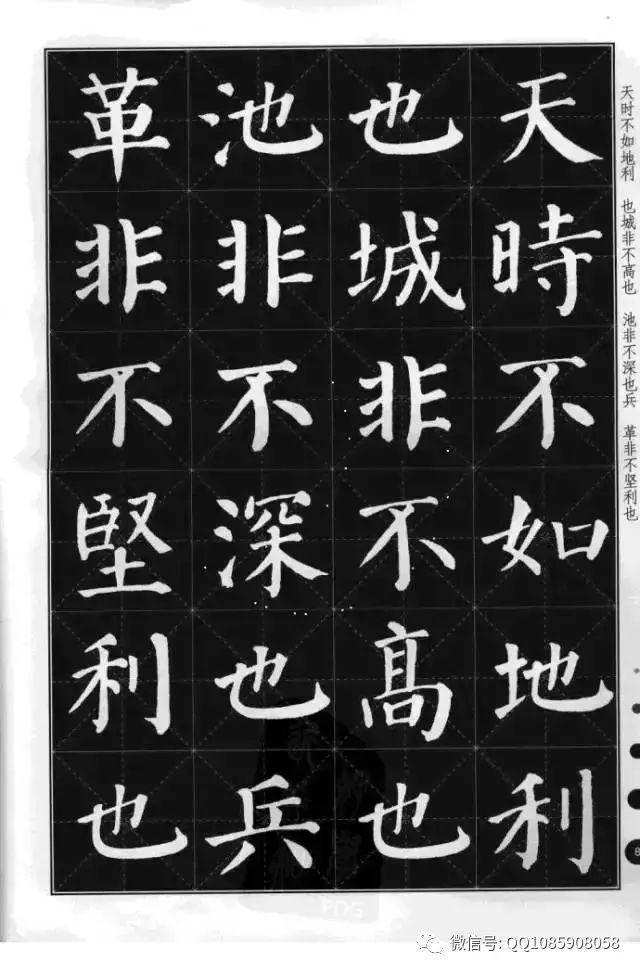 天時不如地利
也城非不高也
池非不深也兵
革非不堅利也
天时不如地利 也城非不高也 池非不深也兵 革非不坚利也
微信号: QQ1085908058